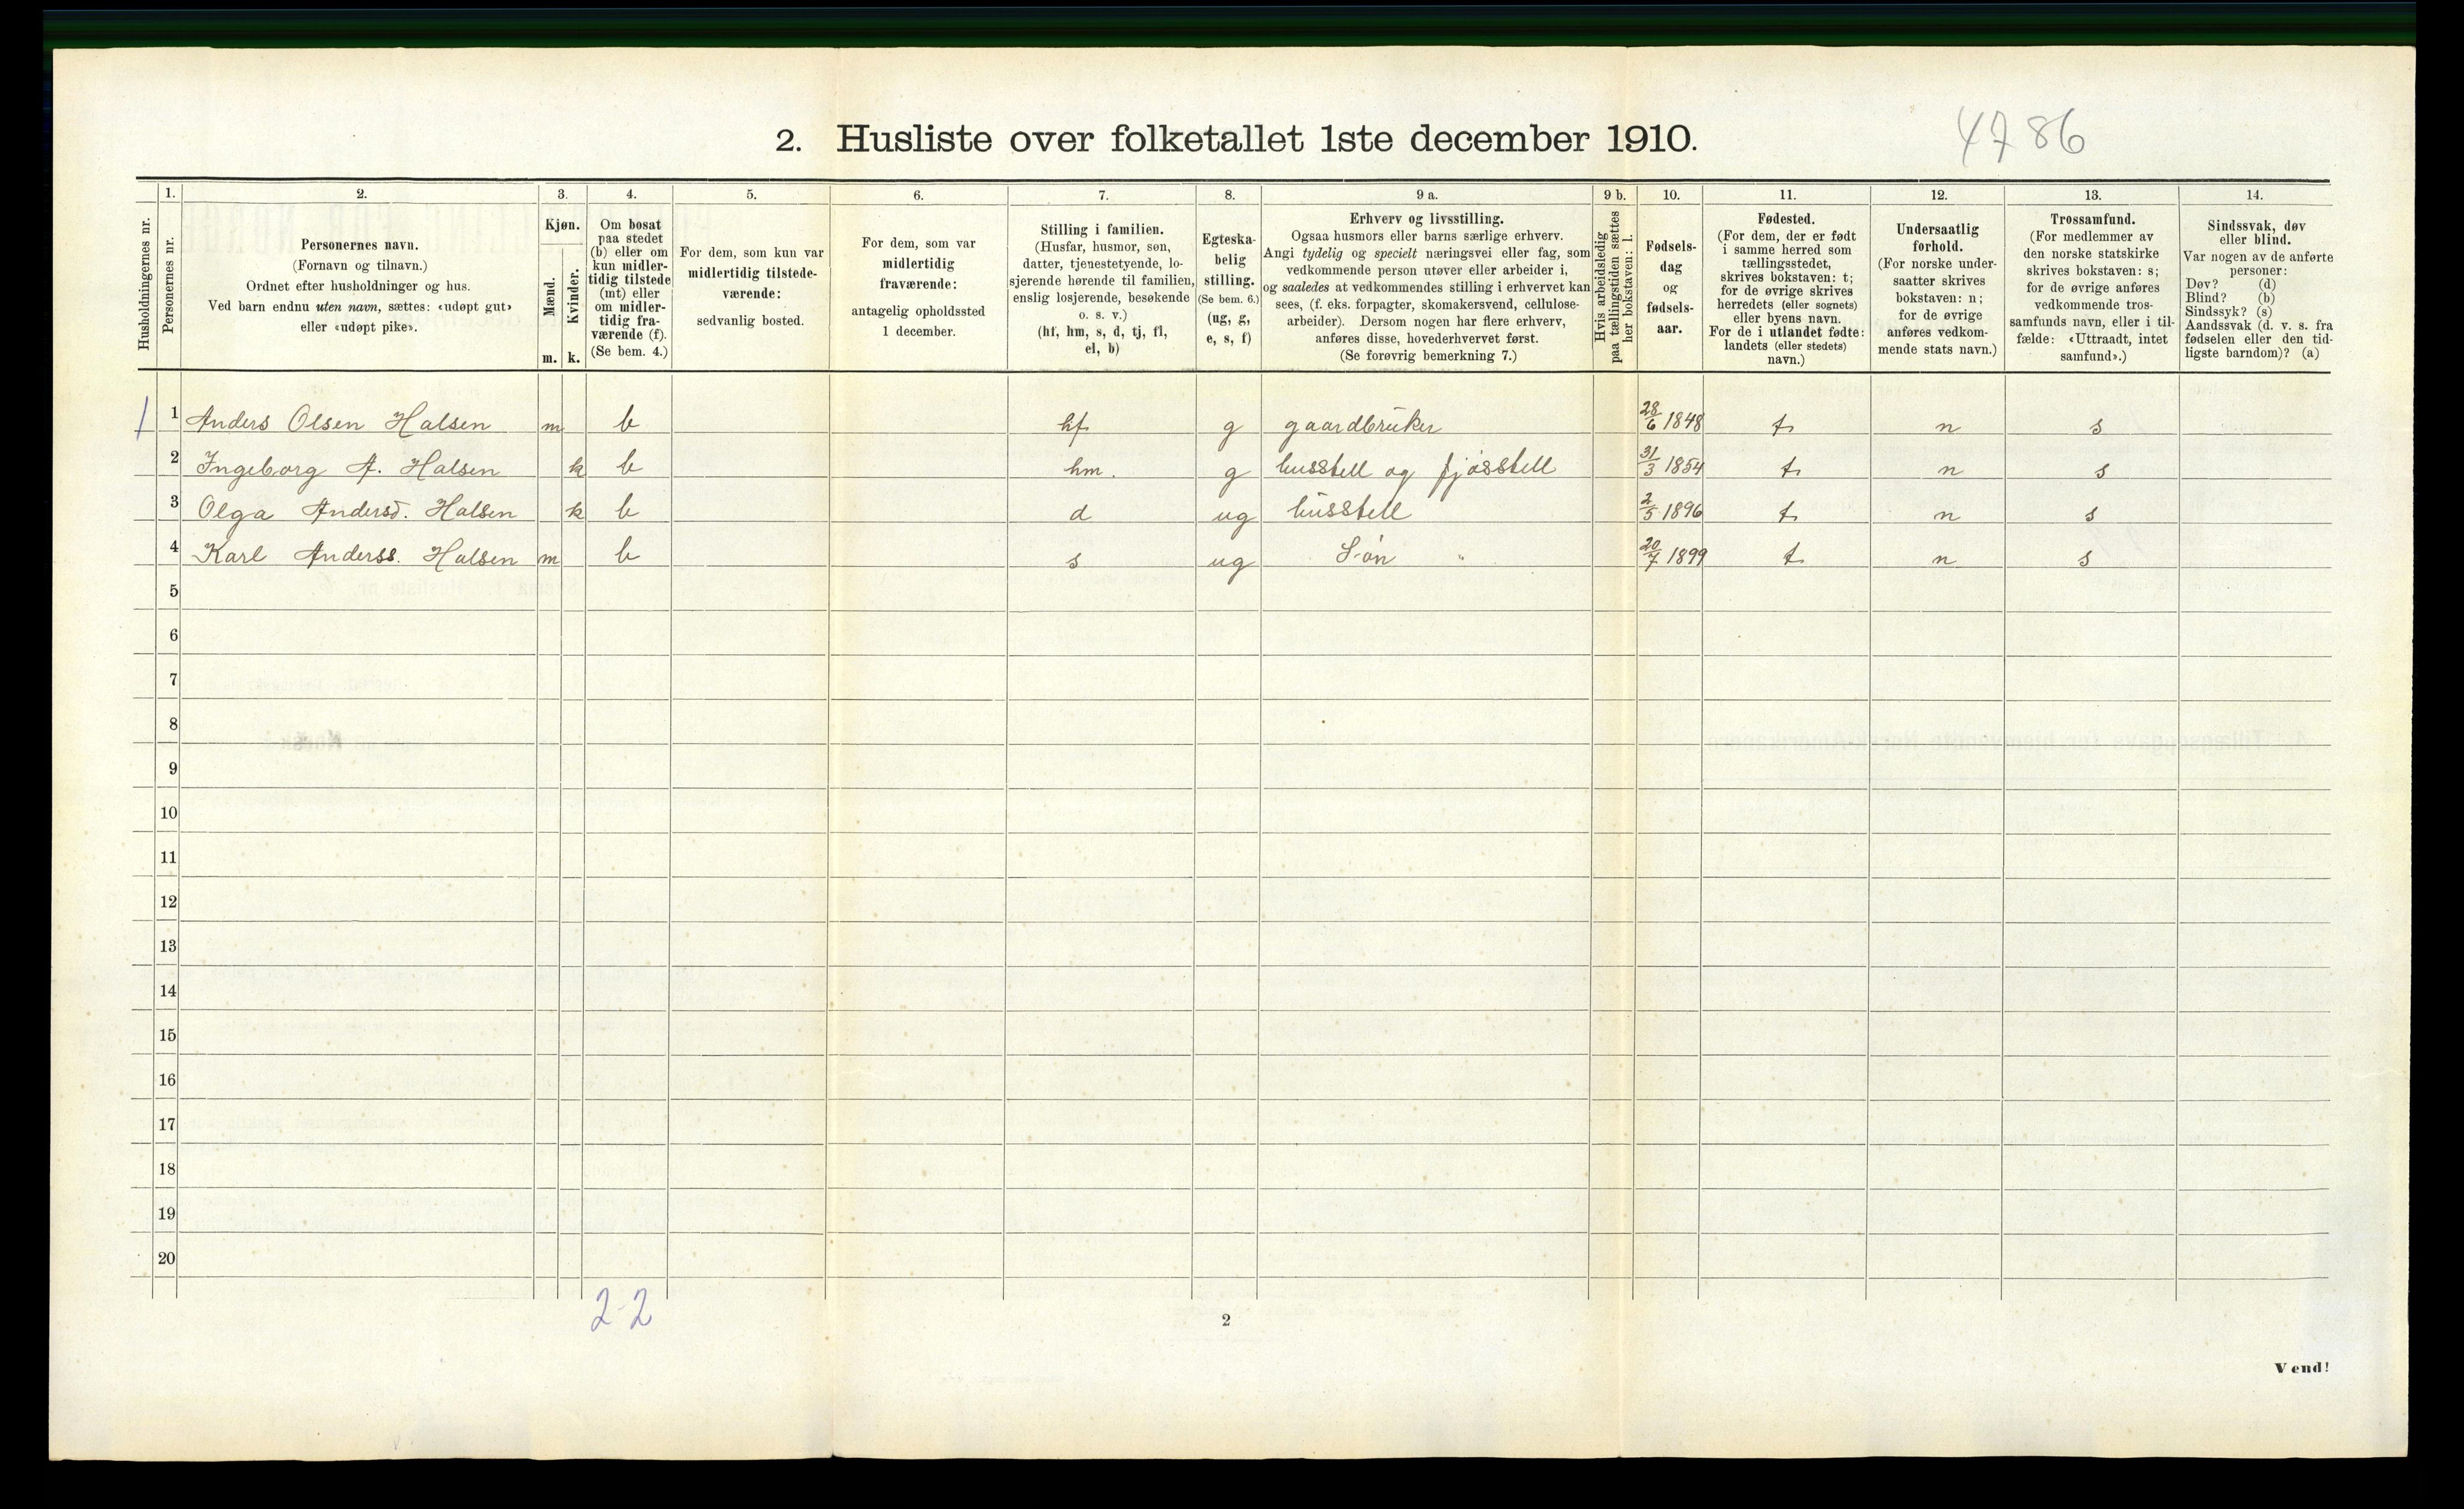 2. Husliste over folketallet 1ste december 1910.
4786
Husholdningernes nr.
1.
Personernes nr.
2.
Personernes navn.
(Fornavn og tilnavn.)
Ordnet efter husholdninger og hus.
Ved barn endnu uten navn, sættes: «udøpt gut»
eller «udøpt pike».
3.
Kjøn.
Mænd.
Kvinder.
m. k.
4.
Om bosat
paa stedet
(b) eller om
kun midler-
tidig tilstede
(mt) eller
om midler-
tidig fra-
værende (f).
(Se bem. 4.)
5.
For dem, som kun var
midlertidig tilstede-
værende:
sedvanlig bosted.
6.
For dem, som var
midlertidig
fraværende:
antagelig opholdssted
1 december.
7.
Stilling i familien.
(Husfar, husmor, søn,
datter, tjenestetyende, lo-
sjerende hørende til familien,
enslig losjerende, besøkende
o. s. v.)
(hf, hm, s, d, tj, fl,
el, b)
8.
Egteska-
belig
stilling.
(Se bem. 6.)
(ug, g,
e, s, f)
9 a.
Erhverv og livsstilling.
Ogsaa husmors eller barns særlige erhverv.
Angi tydelig og specielt næringsvei eller fag, som
vedkommende person utøver eller arbeider i,
og saaledes at vedkommendes stilling i erhvervet kan
sees, (f. eks. forpagter, skomakersvend, cellulose-
arbeider). Dersom nogen har flere erhverv,
anføres disse, hovederhvervet først.
(Se forøvrig bemerkning 7.)
9 b.
Hvis arbeidsledig
paa tællingstiden sættes
her bokstaven: l.
10.
Fødsels-
dag
og
fødsels-
aar.
11.
Fødested.
(For dem, der er født
i samme herred som
tællingsstedet,
skrives bokstaven: t;
for de øvrige skrives
herredets (eller sognets)
eller byens navn.
For de i utlandet fødte:
landets (eller stedets)
navn.)
12.
Undersaatlig
forhold.
(For norske under-
saatter skrives
bokstaven: n;
for de øvrige
anføres vedkom-
mende stats navn.)
13.
Trossamfund.
(For medlemmer av
den norske statskirke
skrives bokstaven: s;
for de øvrige anføres
vedkommende tros-
samfunds navn, eller i til-
fælde: «Uttraadt, intet
samfund».)
14.
Sindssvak, døv
eller blind.
Var nogen av de anførte
personer:
Døv? (d)
Blind? (b)
Sindssyk? (s)
Aandssvak (d. v. s. fra
fødselen eller den tid-
ligste barndom)? (a)
1 1 Anders Olsen Halsen m b hf g gaardbruker 28/6 1848 t n s
2 Ingeborg A. Halsen k b hm. g husstell og fjøsstell 31/3 1854 t n s
3 Olga Andersd. Halsen k b d ug husstell 2/5 1896 t n s
4 Karl Anderss. Halsen m b s ug Søn " 20/7 1899 t n s
5
6
7
8
9
10
11
12
13
14
15
16
17
18
19
20
2-2
2
Vend!